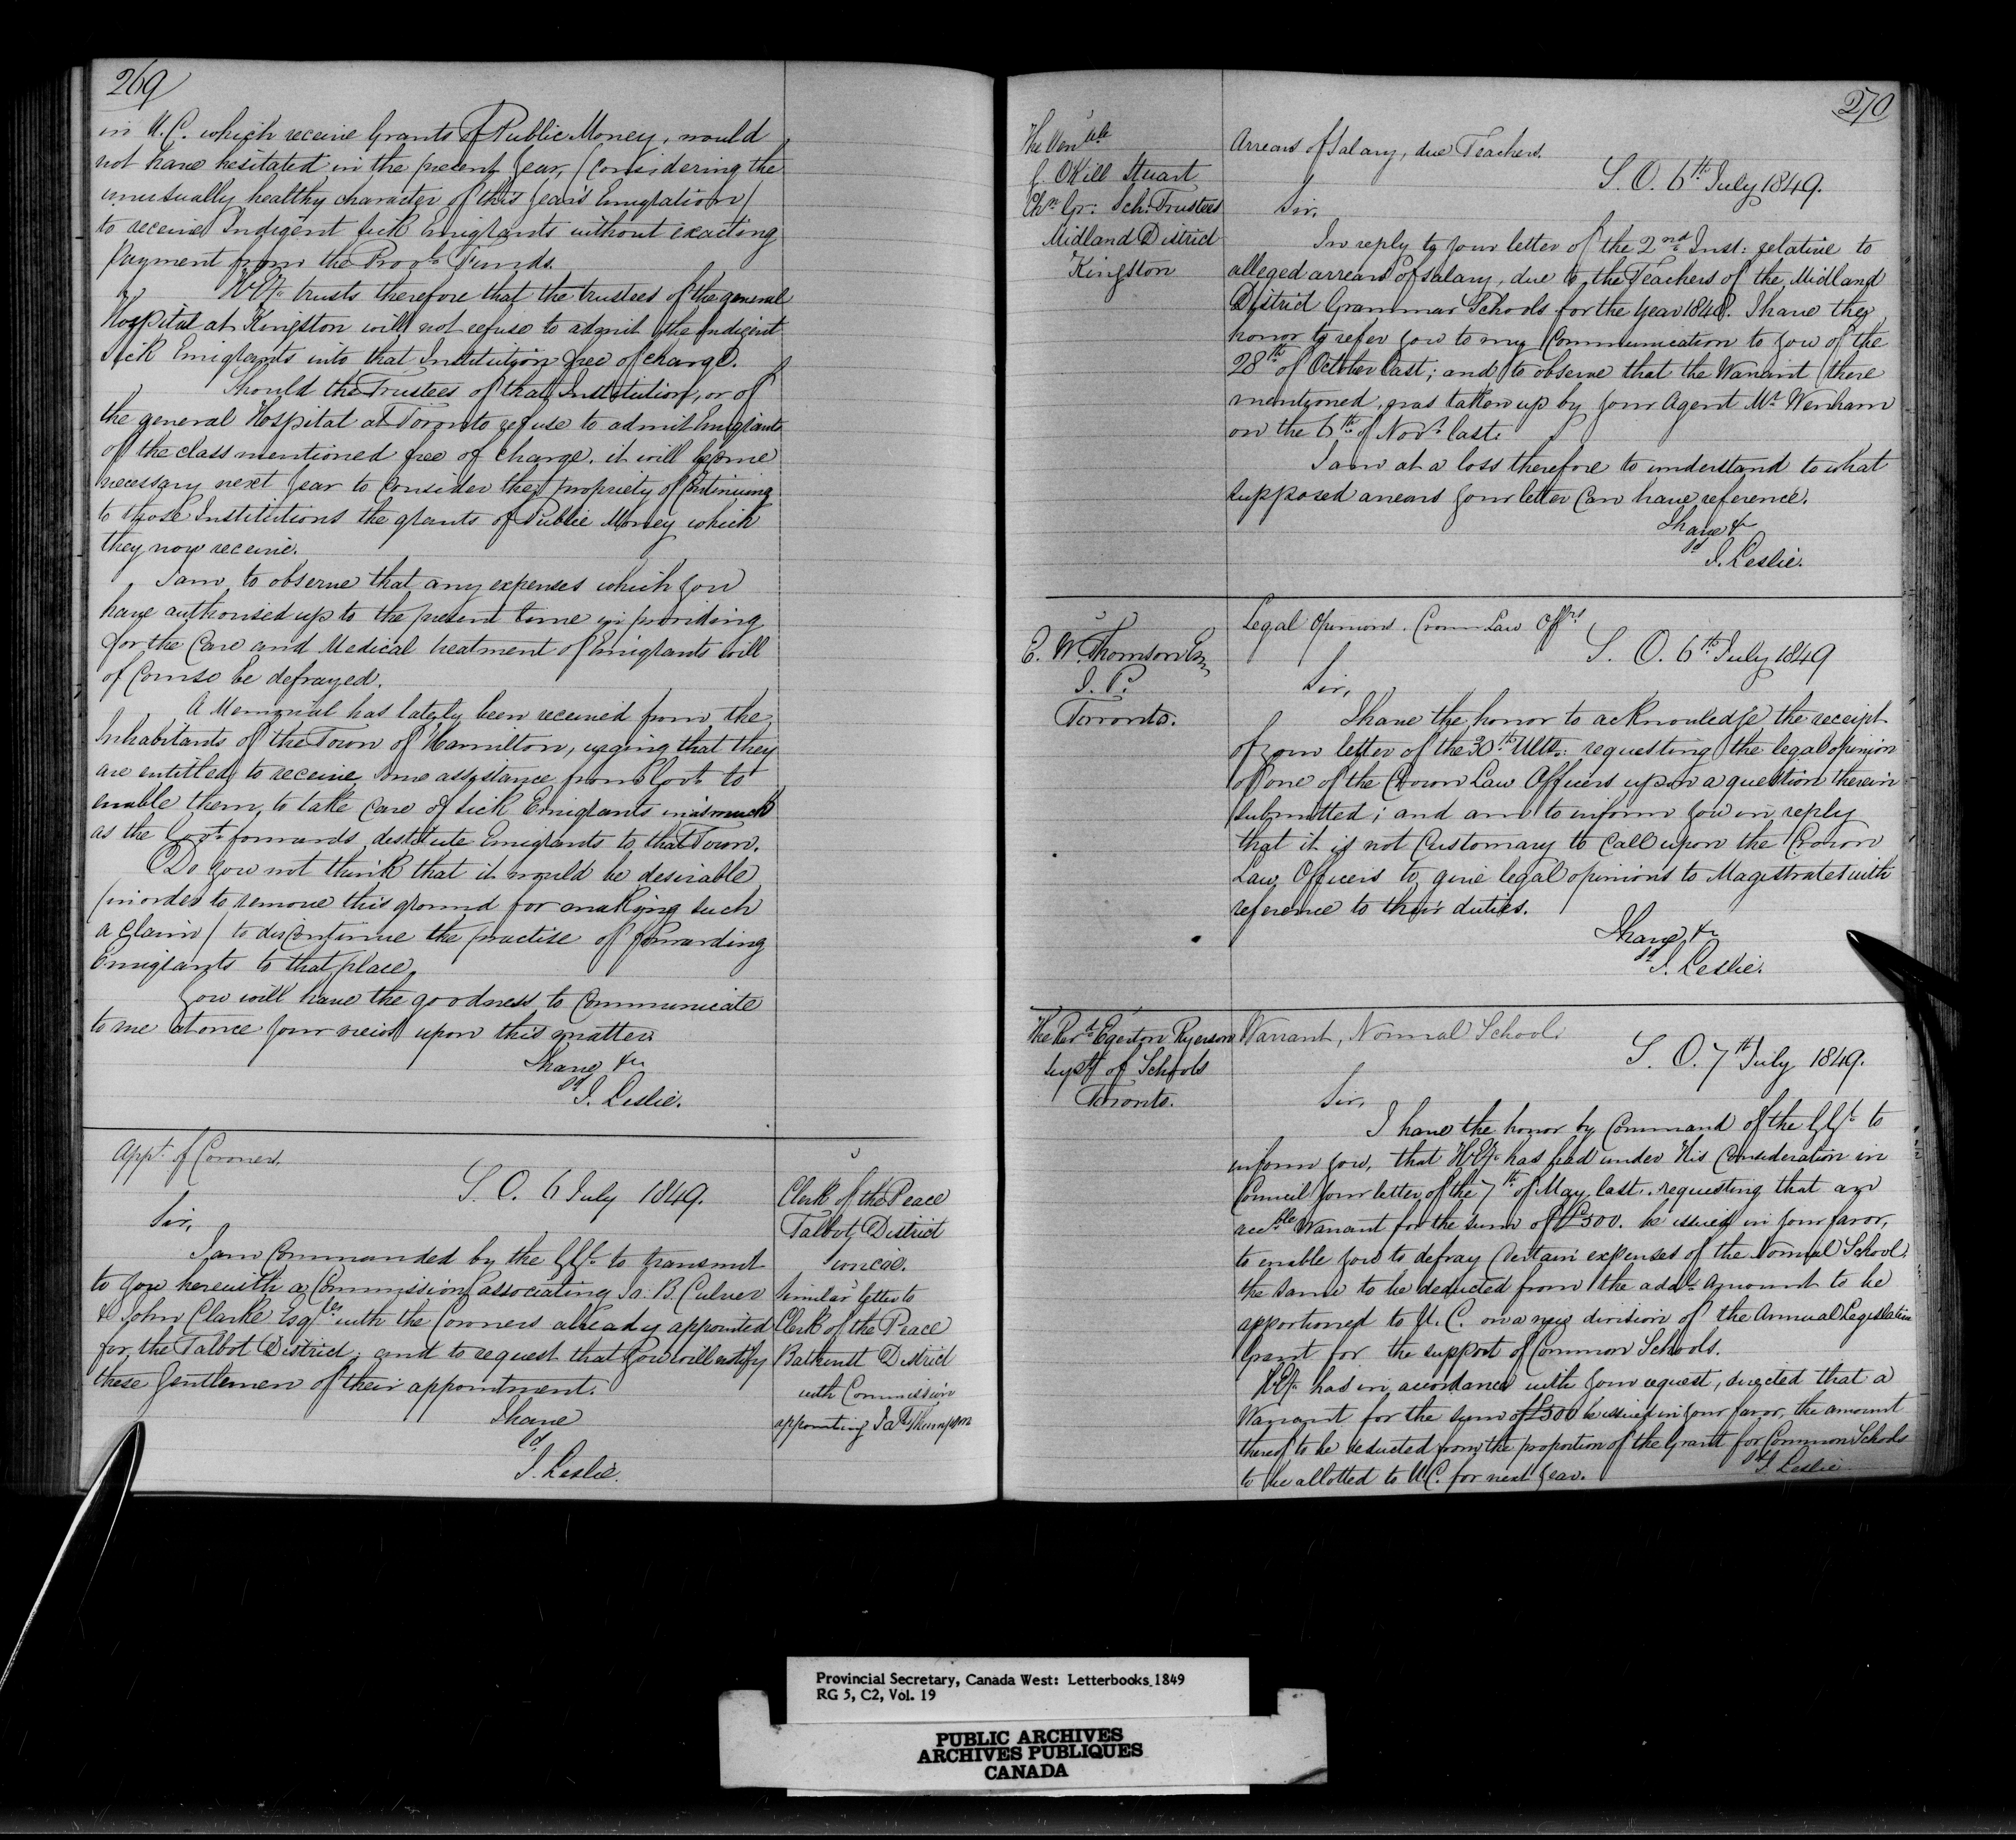 269
in U.C. which receive Grants of Public Money, would
not have hesitated in the present year, (considering the
unusually healthy character of this year's Emigration)
to receive Indigent sick Emigrants without exacting
payment from the Provl. Funds.
H.Ey. trusts therefore that the trustees of the general
Hospital at Kingston will not refuse to admit the Indigent
Sick Emigrants into that Institution free of charge.
Should the Trustees of that Institution, or of
the general Hospital at Toronto refuse to admit Emigrants
of the class mentioned free of charge, it will become
necessary next year to consider the propriety of continuing
to those Institutions the grants of Public Money which
they now receive.
I am to observe that any expenses which you
have authorised up to the present time in providing
for the Care and Medical treatment of Emigrants will
of Course be defrayed.
A Memorial has lately been received from the
Inhabitants of the Town of Hamilton, urging that they
are entitled to receive some assistance from Govt. to
enable them to take care of sick Emigrants inasmuch
as the Govt. forwards destitute Emigrants to that Town.
Do you not think that it would be desirable
(in order to remove this ground for making such
a claim) to discontinue the practise of forwarding
Emigrants to that place.
You will have the goodness to Communicate
to me at once your views upon this matter.
I have &c
sd J. Leslie.
Appt. of Coroner.
S. O. 6 July 1849.
Sir,
I am Commanded by the GGl. to transmit
to you herewith a Commission associating Ja. B. Culver
& John Clarke Esqres with the Coroners already appointed
for the Talbot District; and to request that you will notify
these Gentlemen of their appointment.
I have
sd
J. Leslie.
Clerk of the Peace
Talbot District
Simcoe.
Similar letter to
Clerk of the Peace
Bathurst District
with Commission
appointing Jas Thompson
270
The Venble
G. OKill Stuart
Chn Gr: Sch: Trustees
Midland District
Kingston
Arrears of Salary, due Teachers.
S. O. 6th July 1849.
Sir,
In reply to your letter of the 2nd Inst: relative to
alleged arrears of salary, due to the Teachers of the Midland
District Grammar Schools for the year 1848. I have the
honor to refer you to my Communication to you of the
28th of October last; and to observe that the Warrant there
mentioned, was taken up by your Agent Mr Wenham
on the 6th of Novr last.
I am at a loss therefore to understand to what
supposed arrears your letter can have reference.
I have &c
sd
J. Leslie.
E. W. Thomson Esq
J. P.
Toronto.
Legal Opinions. Crown Law Offrs
S. O. 6th July 1849
Sir,
I have the honor to acknowledge the receipt
of your letter of the 30th Ulto: requesting the legal opinion
of one of the Crown Law Officers upon a question therein
submitted; and am to inform you in reply
that it is not Customary to Call upon the Crown
Law Officers to give legal opinions to Magistrates with
reference to their duties.
I have &c
sd J. Leslie.
The Revd Egerton Ryerson
Supt of Schools
Toronto.
Warrant, Normal School.
S. O. 7th July 1849.
Sir,
I have the honor by Command of the GGl to
inform you, that H.Ey. has had under His Consideration in
Council your letter of the 7th of May last, requesting that an
accble Warrant for the sum of £500. be issued in your favor,
to enable you to defray certain expenses of the Normal School.
the same to be deducted from the addl. Amount to be
apportioned to U. C. on a new division of the Annual Legislative
Grant for the support of Common Schools.
H.Ey. has in accordance with your request, directed that a
Warrant for the sum of £500 be issued in your favor, the amount
thereof to be deducted from the proportion of the Grant for Common Schools
to be allotted to U.C. for next year.
sd J. Leslie
Provincial Secretary, Canada West: Letterbooks 1849
RG 5, C2, Vol. 19
PUBLIC ARCHIVES
ARCHIVES PUBLIQUES
CANADA